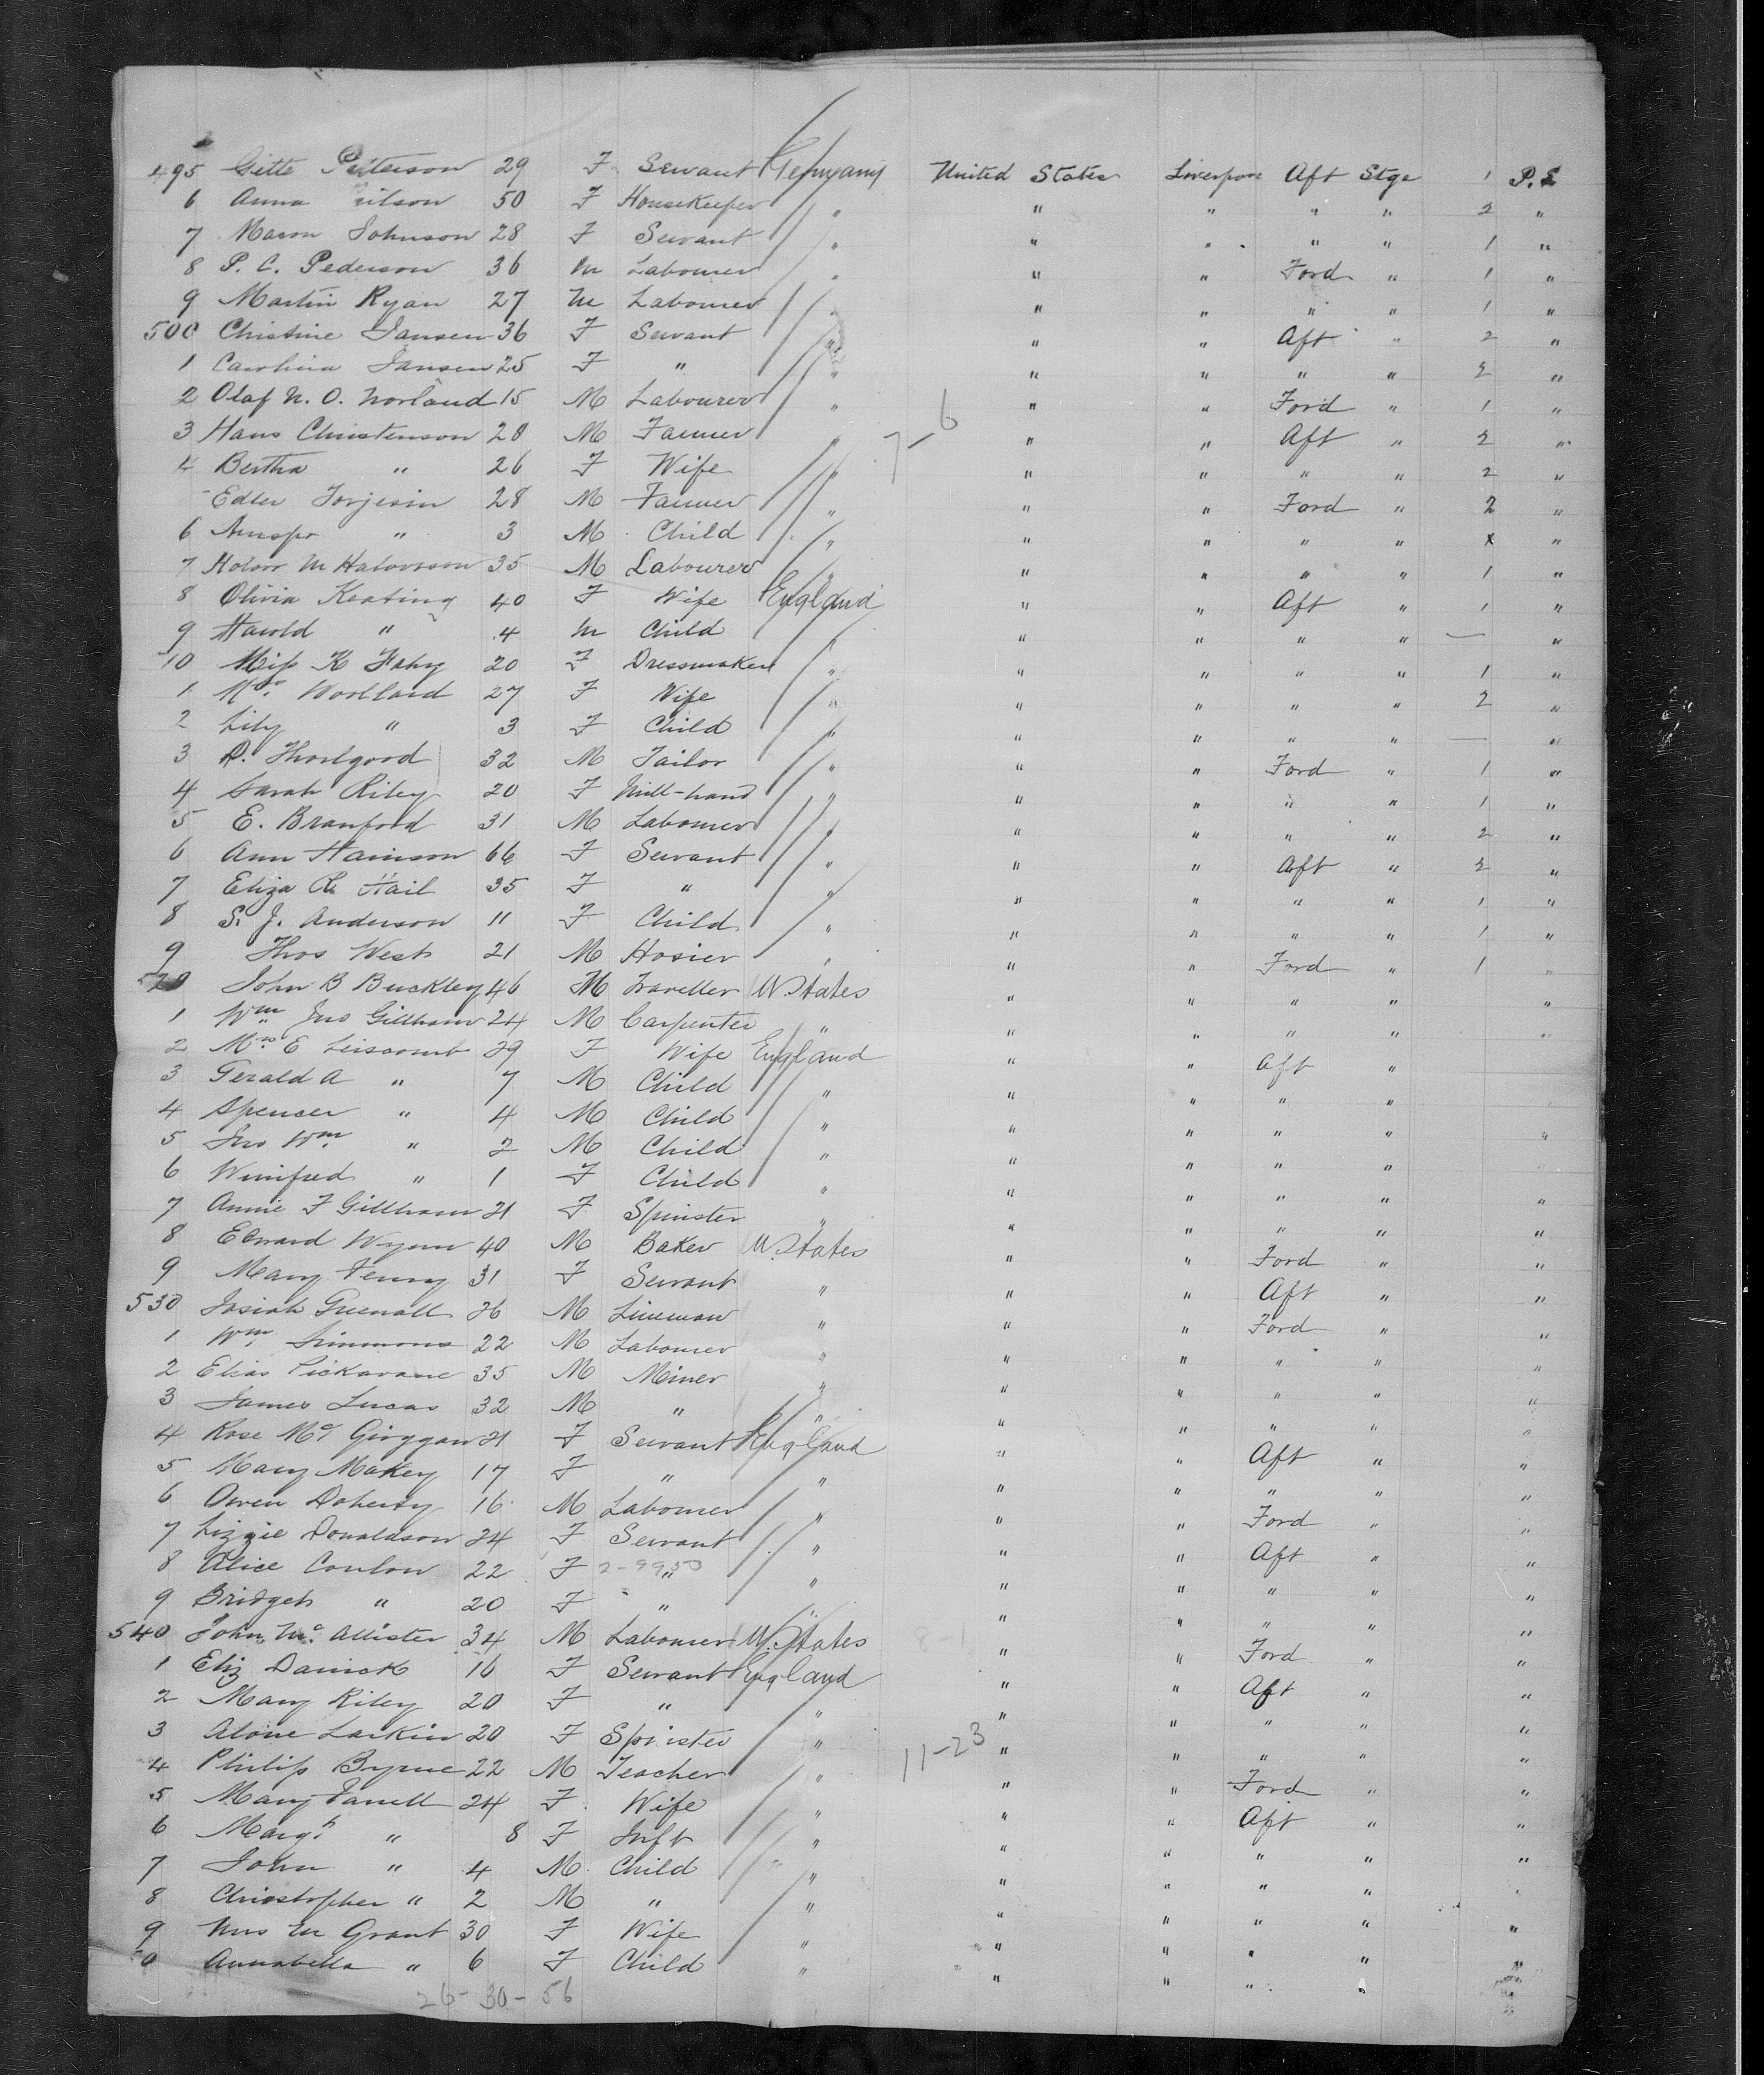 495 Gitte Petterson 29 F Servant Germany United States Liverpool Aft Stge 1 P.S
6 Anna 50 F Housekeeper " " " " " 2 "
7 Mason Johnson 28 F Servant " " " " " 1 "
8 P. C. Pederson 36 M Labourer " " " Ford " 1 "
9 Martin Ryan 27 M Labourer " " " " " 1 "
500 Christine Jansen 36 F Servant " " " Aft " 2 "
1 Carolina Jansen 25 F " " " " " " 2 "
2 Olaf N. O. Norland 15 M Labourer " " " Ford " 1 "
3 Hans Christenson 28 M Farmer " 7-6 " " Aft " 2 "
4 Bertha " 26 F Wife " " " " " 2 "
Edler Torjesin 28 M Farmer " " " Ford " 2 "
6 " 3 M Child " " " " " x "
7 M Halovrson 35 M Labourer " " " " " 1 "
8 Olivia Keating 40 F Wife England " " Aft " 1 "
9 Harold " 4 M Child " " " " " — "
10 Miss K Fahy 20 F Dressmaker " " " " " 1 "
1 Mrs Worlland 27 F Wife " " " " " 2 "
2 Lily " 3 F Child " " " " " — "
3 D. Thorlgood 32 M Tailor " " " Ford " 1 "
4 Sarah Riley 20 F Mill-hand " " " " " 1 "
5 E. Branford 31 M Labourer " " " " " 2 "
6 Ann Harrison 66 F Servant " " " Aft " 2 "
7 Eliza Hail 35 F " " " " " " 1 "
8 S. J. Anderson 11 F Child " " " " " 1 "
9 Thos West 21 M Hosier " " " Ford " 1 "
520 John B Buckley 46 M Traveller U. States " " " " "
1 Wm Jno Gillham 24 M Carpenter " " " " " "
2 Mrs E Liscomb 29 F Wife England " " Aft "
3 Gerald A " 7 M Child " " " " "
4 Spencer " 4 M Child " " " " "
5 Jno Wm " 2 M Child " " " " " "
6 Winifred " 1 F Child " " " " "
7 Annie F Gillham 21 F Spinster " " " " " "
8 Edward Wynn 40 M Baker U. States " " Ford " "
9 Mary Fenny 31 F Servant " " " Aft " "
530 Josiah Greenall 26 M Lineman " " " Ford " "
1 Wm Simmons 22 M Labourer " " " " " "
2 Elias Pickavane 35 M Miner " " " " " "
3 James Lucas 32 M " " " " " " "
4 Rose Mc Girggan 21 F Servant England " " Aft " "
5 Mary Makey 17 F " " " " " " "
6 Owen Doherty 16 M Labourer " " " Ford " "
7 Lizzie Donaldson 24 F Servant " " " Aft " "
8 Alice Conlon 22 F 2-9950 " " " " " " "
9 Bridget " 20 F " " " " " " "
540 John Mc Allister 34 M Labourer U. States 8-1 " " Ford " "
1 Eliz Darrick 16 F Servant England " " Aft " "
2 Mary Riley 20 F " " " " " " "
3 Larkin 20 F Spinster " 11-23 " " " " "
4 Philip Byrne 22 M Teacher " " " Ford " "
5 Mary Farrell 24 F Wife " " " Aft " "
6 Margt " 8 F Inft " " " " " "
7 John " 4 M Child " " " " "
8 Christopher " 2 M " " " " " " "
9 Mrs M Grant 30 F Wife " " " " " "
50 Annabella " 6 F Child " " " " "
26-30-56